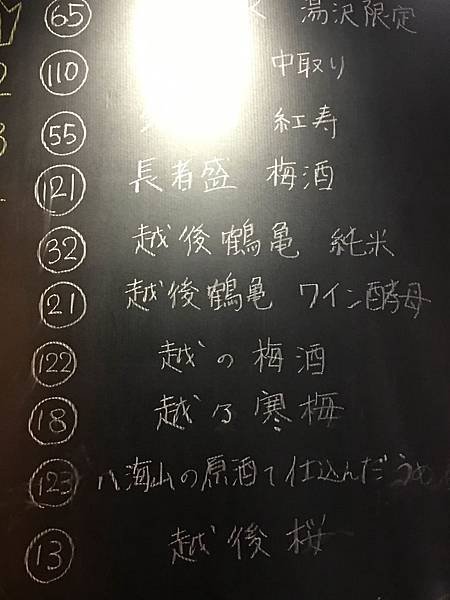 65 湯沢限定
110 中取り
55 紅寿
121 長者盛 梅酒
32 越後鶴亀 純米
21 越後鶴亀 ワイン酵母
122 越の梅酒
18 越乃寒梅
123 八海山の原酒で仕込んだうめ
13 越後桜